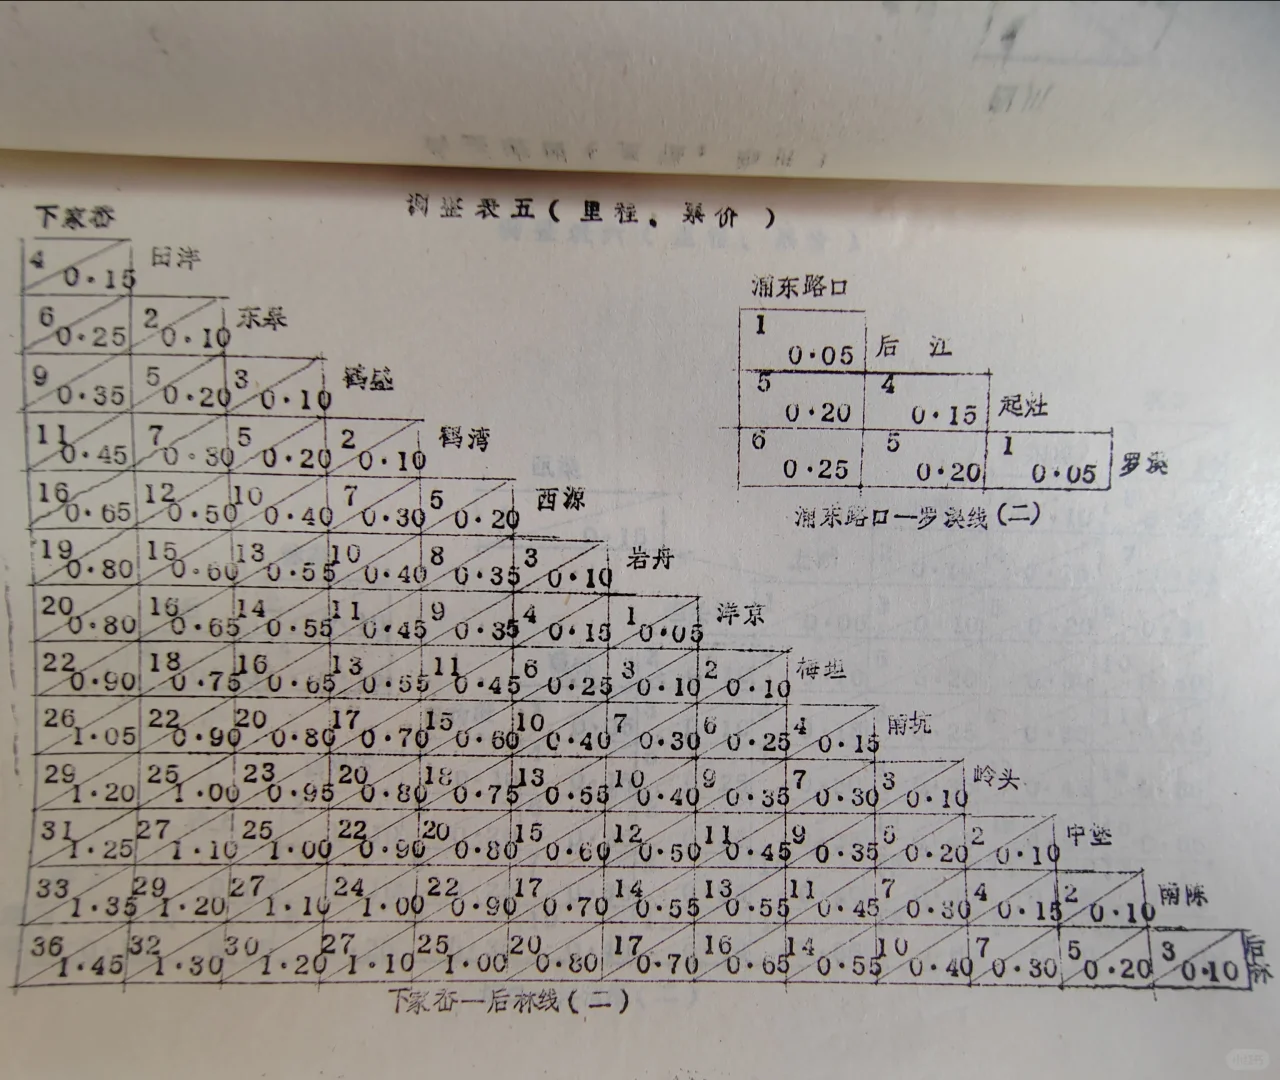 调整表五(里程。票价)
下家岙
4 0·15 田洋
6 0·25 2 0·10 东皋
9 0·35 5 0·20 3 0·10 鹤盛
11 0·45 7 0·30 5 0·20 2 0·10 鹤湾
16 0·65 12 0·50 10 0·40 7 0·30 5 0·20 西源
19 0·80 15 0·60 13 0·55 10 0·40 8 0·35 3 0·10 岩舟
20 0·80 16 0·65 14 0·55 11 0·45 9 0·35 4 0·15 1 0·05 洋京
22 0·90 18 0·75 16 0·65 13 0·55 11 0·45 6 0·25 3 0·10 2 0·10 梅坦
26 1·05 22 0·90 20 0·80 17 0·70 15 0·60 10 0·40 7 0·30 6 0·25 4 0·15 南坑
29 1·20 25 1·00 23 0·95 20 0·80 18 0·75 13 0·55 10 0·40 9 0·35 7 0·30 3 0·10 岭头
31 1·25 27 1·10 25 1·00 22 0·90 20 0·80 15 0·60 12 0·50 11 0·45 9 0·35 0·20 2 0·10 中垡
33 1·35 29 1·20 27 1·10 24 1·00 22 0·90 17 0·70 14 0·55 13 0·55 11 0·45 7 0·30 4 0·15 2 0·10 南陈
36 1·45 32 1·30 30 1·20 27 1·10 25 1·00 20 0·80 17 0·70 16 0·65 14 0·55 10 0·40 7 0·30 5 0·20 3 0·10 后林
下家岙—后林线(二)
浦东路口
1 0·05 后江
5 0·20 4 0·15 起灶
6 0·25 5 0·20 1 0·05 罗溪
浦东路口—罗溪线(二)